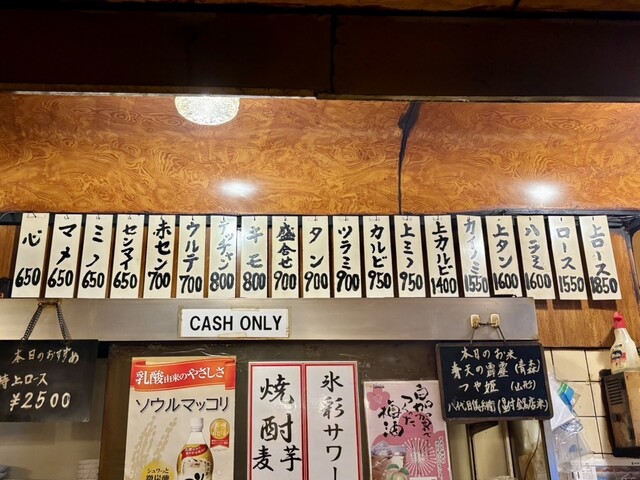 心
650
マメ
650
ミノ
650
センマイ
650
赤セン
700
ウルテ
700
テッチャン
800
キモ
800
盛合せ
900
タン
900
ツラミ
900
カルビ
950
上ミノ
950
上カルビ
1400
カイノミ
1550
上タン
1600
ハラミ
1600
ロース
1550
上ロース
1850
CASH ONLY
本日のおすすめ
特上ロース
¥2500
乳酸由来のやさしさ
ソウルマッコリ
シュワっと
微炭酸
焼酎
芋
麦
氷彩サワー
梅酒
本日のお米
青天の霹靂(青森)
つや姫(山形)